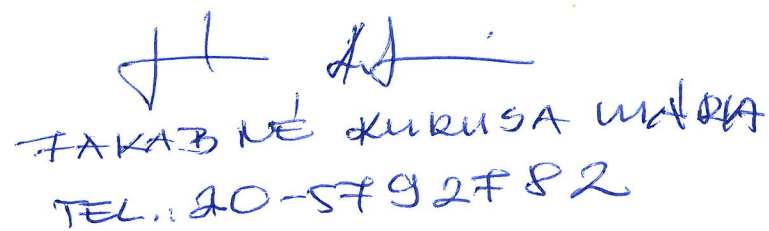 JAKAB NÉ KURUSA MÁRIA
TEL.: 20-5792782